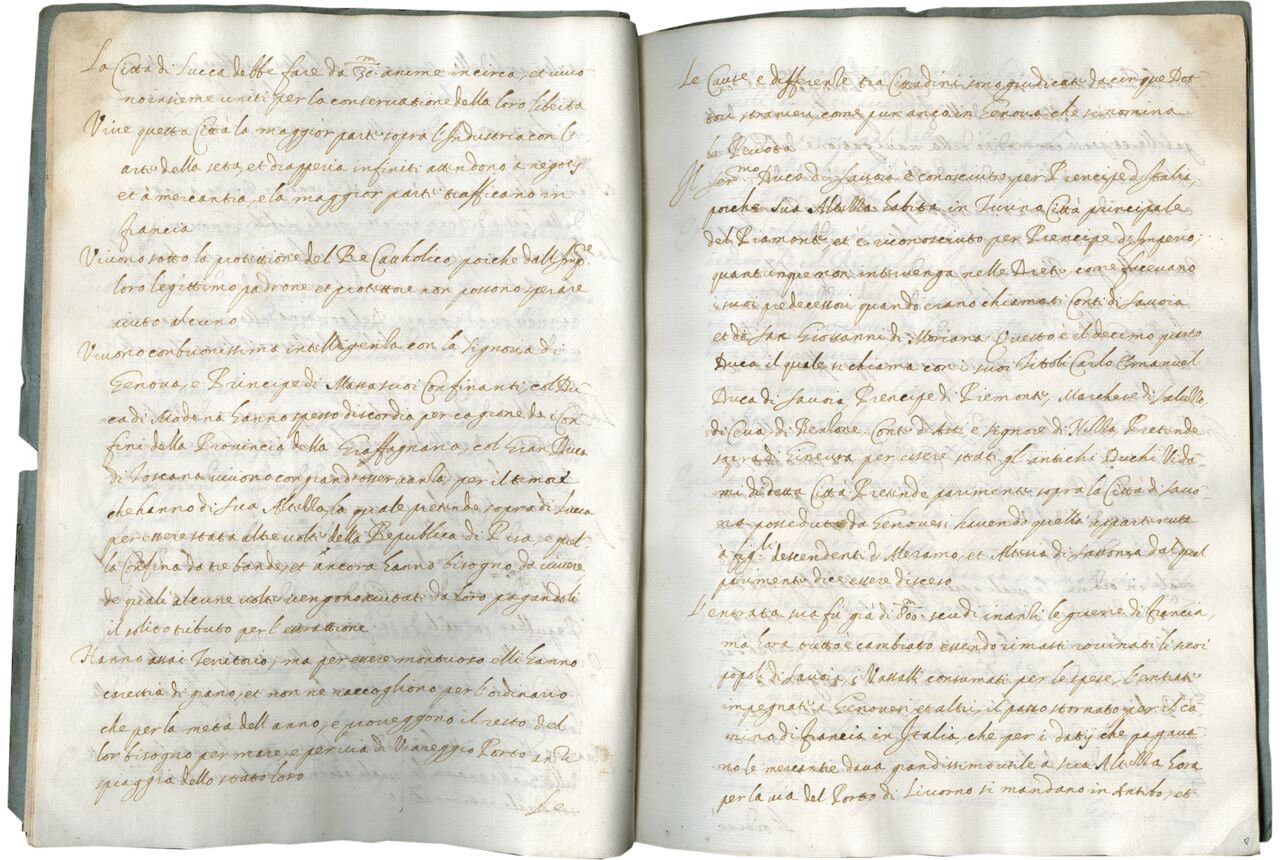 La Città di Lucca debbe fare da 30 m anime in circa, et vivo-
no insieme uniti per la conservatione della loro libertà
Vive questa Città la maggior parte sopra l'Industria con le
arte della seta, et drapperia infiniti attendono a negotij
et à mercantia, e la maggior parte trafficano in
francia
Vivono sotto la protettione del Re Catholico, poiche dall'Imp.re
loro legittimo padrone et protettore non possono sperare
aiuto alcuno
Vivono con buonissima intelligenza con la Signoria di
Genova, e Principe di Massa suoi Confinanti, col Du-
ca di Modena hanno spesso discordia per cagione de i Con-
fini della Provincia della Graffagnana, col Gran Duca
di Toscana vivono con grand'osservanza, per il timore
che hanno di Sua Altezza, la quale pretende sopra di Lucca
per essere stata altre volte della Republica di Pisa, e quel-
la Confina da tre bande, et ancora hanno bisogno di vivere
de quali alcune volte vengono aiutati da loro pagandoli
il solito tributo per l'estrattione
Hanno assai Territorio, ma per essere montuoso elli hanno
carestia di grano, et non ne raccogliono per l'ordinario
che per la metà dell'anno, e proveggono il resto del
lor bisogno per mare, e per via di Viareggio Porto anzi
spiaggia dello stato loro
Le
Le Cause e differenze tra Cittadini sono giudicate da cinque Dot-
tori stranieri come pur anco in Genova che si nomina
la Ruota
Il Ser.mo Duca di Savoia è conosciuto per Prencipe d'Italia,
poiche Sua Altezza habita in Turino Città principale
del Piamonte, et è riconosciuto per Prencipe di Imperio,
quantunque non intervenga nelle Diete come facevano
i suoi predecessori quando erano chiamati Conti di Savoia
et di San Giovanni di Moriana Questo è il decimo
Duca il quale si chiama con i suoi Titoli Carlo Emanuel
Duca di Savoia Prencipe di Piemonte, Marchese di Saluzzo,
di Ceva, di Conte d'Asti e signore di Nizza Pretende
sopra di Gineura per essere stati gl'antichi Duchi Vido-
mi di detta Città Pretende parimente sopra la Città di Savo-
na posseduta da Genovesi havendo quella appartenuta
à figli descendenti d'Aleramo, et Alasia di Sassonia dal qual
parimente dice essere disceso
L'entrata sua fù già di scudi inanzi le guerre di francia,
ma hora tutto e cambiato essendo rimasti rovinati li suoi
popoli di Savoia, i Vassalli consumati per le spese, l'entrate
impegnate à Genovesi et altri, il passo stornato per il ca-
mino di francia in Italia, che per i datij che pagava-
no le mercantie dava grandissimo utile a sua Altezza hora
per la via del Porto di Livorno si mandano in Antibo, et
8